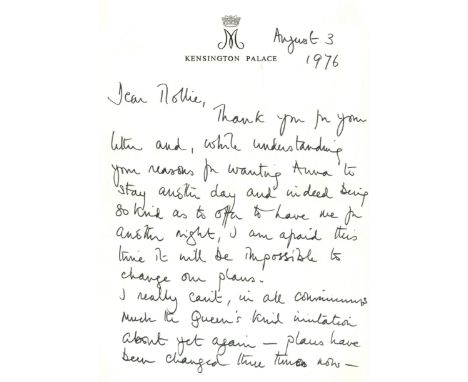 August 3
1976
M
KENSINGTON PALACE
Dear Mollie,
Thank you for your
letter and, while understanding
your reasons for wanting Anna to
stay another day and indeed being
so kind as to offer to have me for
another night, I am afraid this
time it will be impossible to
change our plans.
I really can't, in all
much the Queen's kind invitation
about yet again – plans have
been changed three times now –